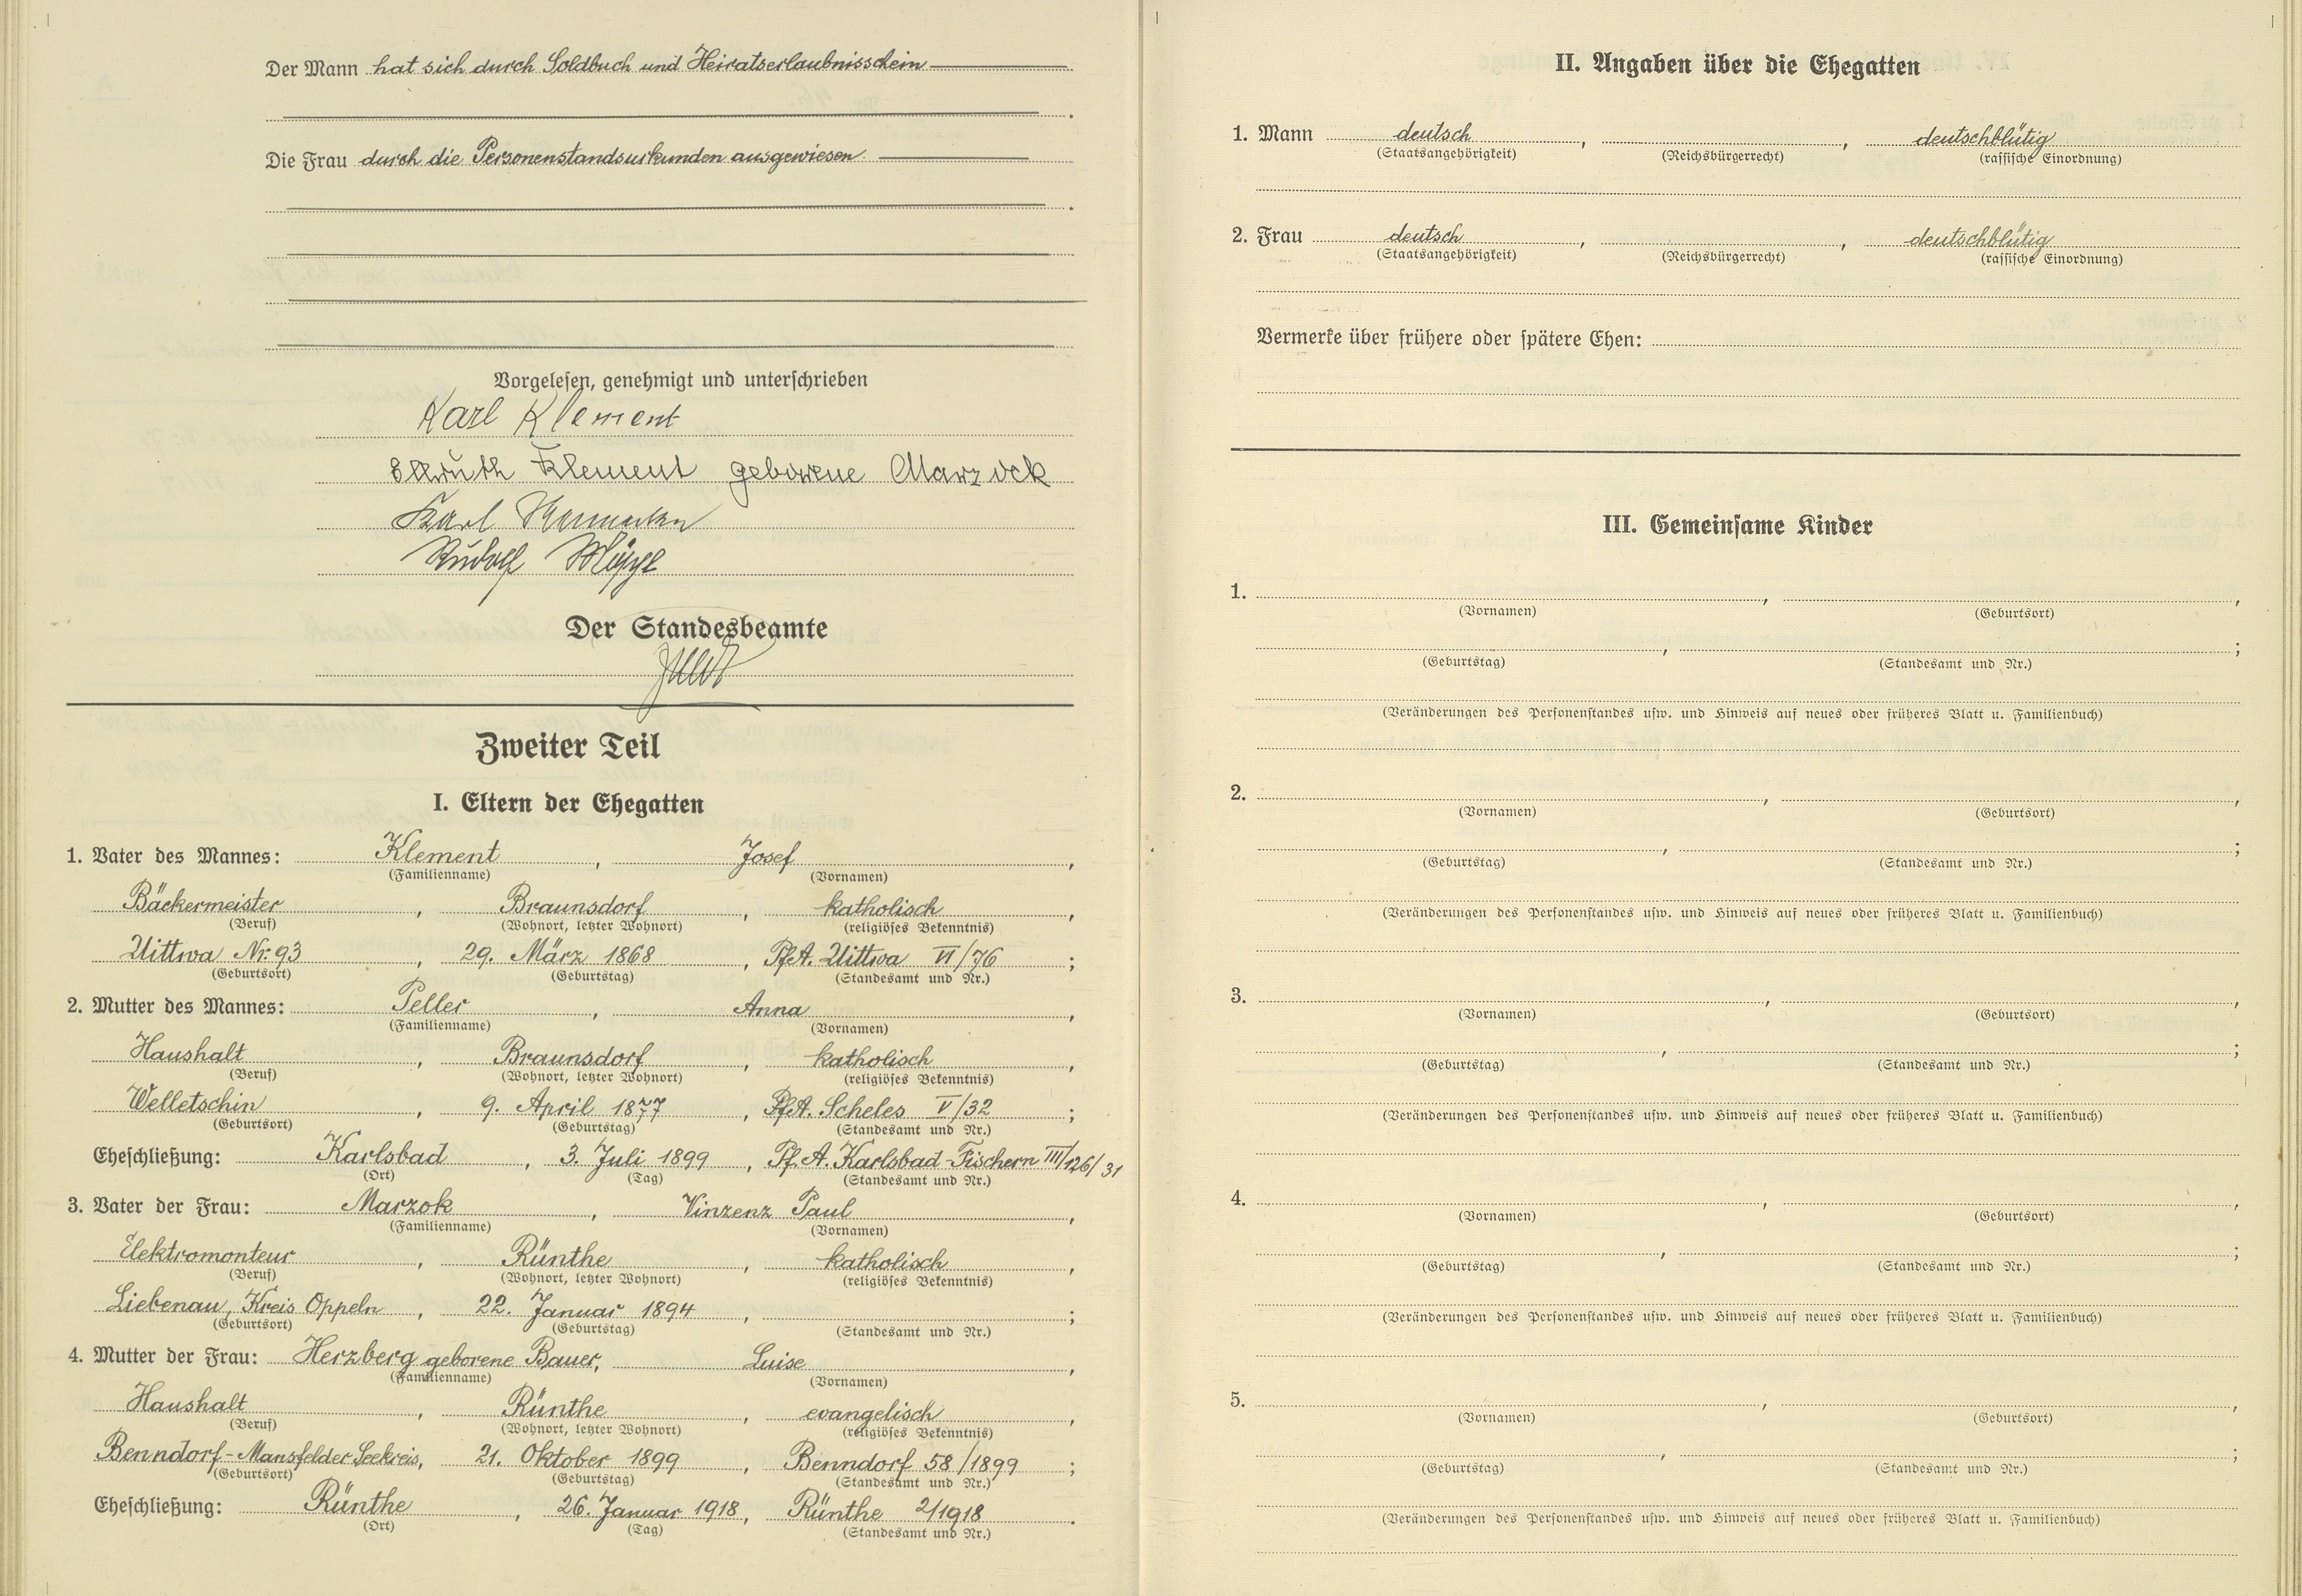 Der Mann hat sich durch Soldbuch und Heiratserlaubnisschein
Die Frau durch die Personenstandsurkunden ausgewiesen.
Vorgelesen, genehmigt und unterschrieben
Karl Klement
Klement geborene Marzock
Karl
Rudolf
Der Standesbeamte
Zweiter Teil
I. Eltern der Ehegatten
1. Vater des Mannes: Klement, Josef,
(Familienname) (Vornamen)
Bäckermeister, Braunsdorf, katholisch,
(Beruf) (Wohnort, letzter Wohnort) (religiöses Bekenntnis)
Uittwa Nr. 93, 29. März 1868, PfA. Uittwa VI/76;
(Geburtsort) (Geburtstag) (Standesamt und Nr.)
2. Mutter des Mannes: Peller, Anna,
(Familienname) (Vornamen)
Haushalt, Braunsdorf, katholisch,
(Beruf) (Wohnort, letzter Wohnort) (religiöses Bekenntnis)
Welletschin, 9. April 1877, PfA. Scheles V/32;
(Geburtsort) (Geburtstag) (Standesamt und Nr.)
Eheschließung: Karlsbad, 3. Juli 1899, Pf. A. Karlsbad-Fischern III/126/31
(Ort) (Tag) (Standesamt und Nr.)
3. Vater der Frau: Marzok, Vinzenz Paul,
(Familienname) (Vornamen)
Elektromonteur, Rünthe, katholisch,
(Beruf) (Wohnort, letzter Wohnort) (religiöses Bekenntnis)
Liebenau, Kreis Oppeln, 22. Januar 1894, ;
(Geburtsort) (Geburtstag) (Standesamt und Nr.)
4. Mutter der Frau: Herzberg geborene Bauer, Luise,
(Familienname) (Vornamen)
Haushalt, Rünthe, evangelisch,
(Beruf) (Wohnort, letzter Wohnort) (religiöses Bekenntnis)
Benndorf-Mansfelder Seekreis, 21. Oktober 1899, Benndorf 58/1899;
(Geburtsort) (Geburtstag) (Standesamt und Nr.)
Eheschließung: Rünthe, 26. Januar 1918, Rünthe 2/1918.
(Ort) (Tag) (Standesamt und Nr.)
II. Angaben über die Ehegatten
1. Mann deutsch, , deutschblütig
(Staatsangehörigkeit) (Reichsbürgerrecht) (rassische Einordnung)
2. Frau deutsch, , deutschblütig
(Staatsangehörigkeit) (Reichsbürgerrecht) (rassische Einordnung)
Vermerke über frühere oder spätere Ehen:
III. Gemeinsame Kinder
1. , ,
(Vornamen) (Geburtsort)
, ;
(Geburtstag) (Standesamt und Nr.)
(Veränderungen des Personenstandes usw. und Hinweis auf neues oder früheres Blatt u. Familienbuch)
2. , ,
(Vornamen) (Geburtsort)
, ;
(Geburtstag) (Standesamt und Nr.)
(Veränderungen des Personenstandes usw. und Hinweis auf neues oder früheres Blatt u. Familienbuch)
3. , ,
(Vornamen) (Geburtsort)
, ;
(Geburtstag) (Standesamt und Nr.)
(Veränderungen des Personenstandes usw. und Hinweis auf neues oder früheres Blatt u. Familienbuch)
4. , ,
(Vornamen) (Geburtsort)
, ;
(Geburtstag) (Standesamt und Nr.)
(Veränderungen des Personenstandes usw. und Hinweis auf neues oder früheres Blatt u. Familienbuch)
5. , ,
(Vornamen) (Geburtsort)
, ;
(Geburtstag) (Standesamt und Nr.)
(Veränderungen des Personenstandes usw. und Hinweis auf neues oder früheres Blatt u. Familienbuch)